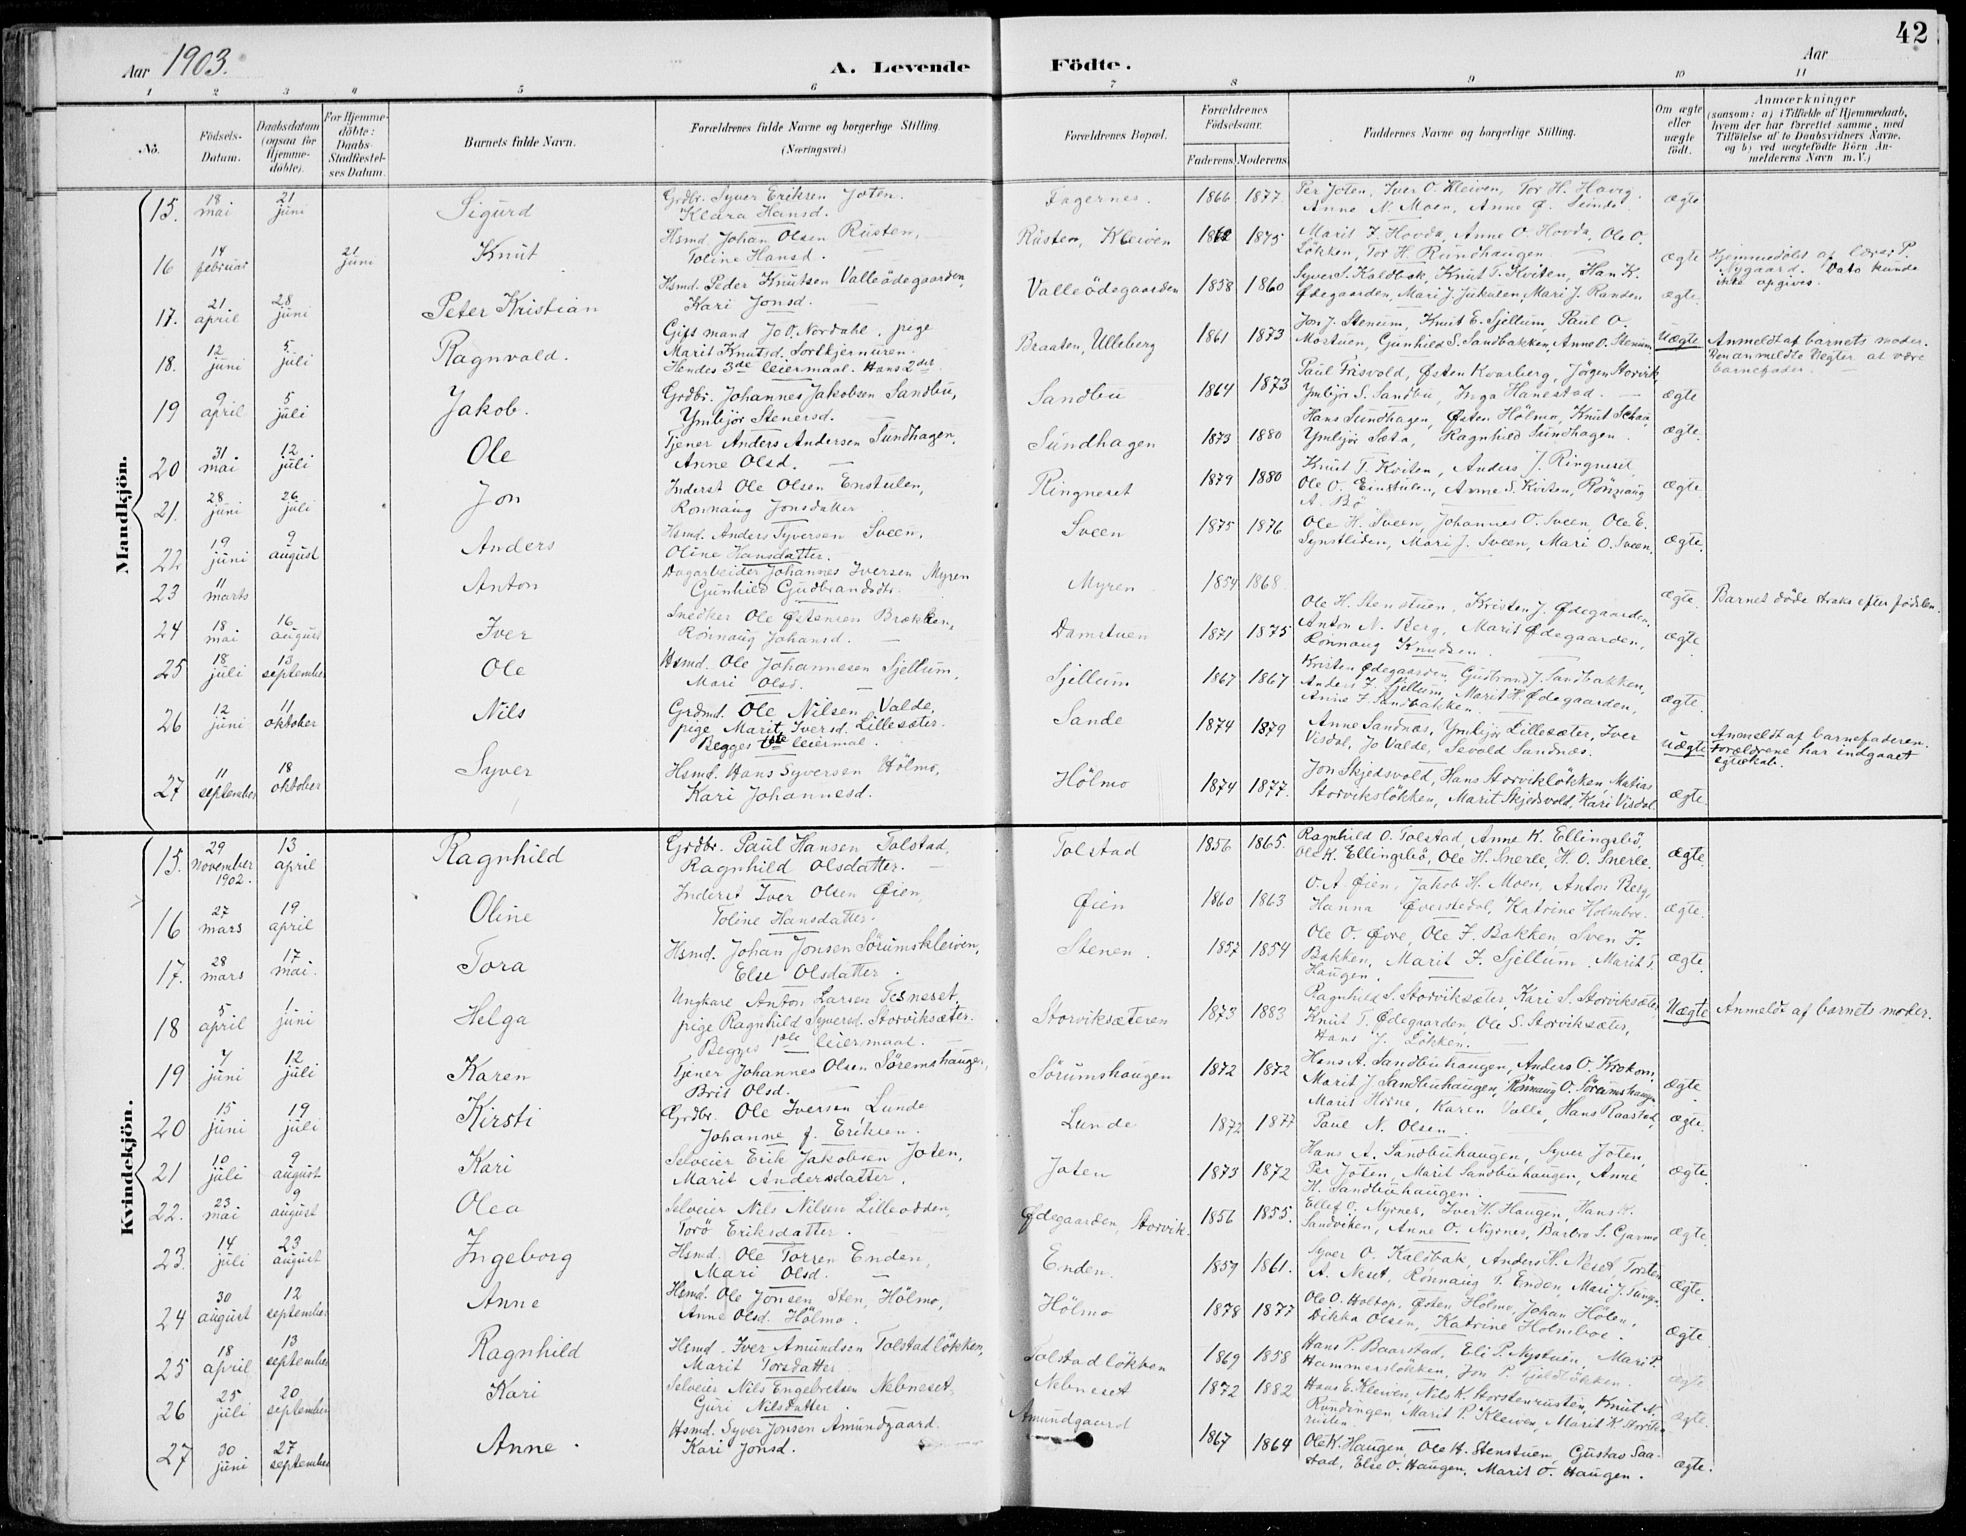 42
Aar 1903.
A. Levende Födte.
Aar
1 2 3 4 5 6 7 8 9 10 11
No.
Födsels-Datum.
Daabsdatum (ogsaa for Hjemme-döbte).
For Hjemme-döbte: Daabs-Stadfæstel-ses Datum.
Barnets fulde Navn.
Forældrenes fulde Navne og borgerlige Stilling. (Næringsvei.)
Forældrenes Bopæl.
Forældrenes Födselsaar.
Faderens. Moderens.
Faddernes Navne og borgerlige Stilling.
Om ægte eller uægte født.
Anmærkninger
(saasom: a) i Tilfælde af Hjemmedaab, hvem der har forrettet samme, med Tilföielse af to Daabsvidners Navne, og b) ved uægtefödte Börn An-melderens Navn m. V.)
Mandkjön.
15. 18 mai 21 juni Sigurd Grdbr. Syver Eriksen Joten. Klara Hansd. Fagernes. 1866 1877. Per Joten, Iver O. Kleiven, Tor H. Havig. Anne N. Moen, Anne Ø. Sunde. ægte
16 14 februar 21 juni Knut Hsmd. Johan Olsen Rusten, Toline Hansd. Rusten, Kleiven 1875 Marit I. Hovda, Anne O. Hovda, Ole O. Løkken, Tor H. Rundhaugen ægte Hjemmedöbt af lærer P. Nygaard. Dato kunde ikke opgives.
17. 21 april 28 juni Peter Kristian Hsmd. Peder Knutsen Valleödegaarden, Kari Jonsd. Valleödegaarden 1858 1860 Syver S. Kaldbak, Knut T. Kviten, Han K. Ødegaarden, Mari J. Jukulen, Mari J. Randen ægte.
18. 12 juni 5 juli Ragnvald. Gift mand Jo O. Nordahl. pige Marit Knutsd. Sortkjernuren. Hendes 3de leiermaal. Hans 2det Braaten, Ulleberg 1861 1873 Jon J. Stenum, Knut E. Sjellum, Paul O. Mostuen, Gunhild S. Sandbakken, Anne O. Stenum. Uægte Anmeldt af barnets moder. Den anmeldte negter at være barnefader.
19 9 april 5 juli Jakob. Grdbr. Johannes Jakobsen Sandbu, Ymbjør Stenersd. Sandbu 1864 1873 Paul Frisvold, Østen Kvarberg, Jørgen Storvik, Ymbjør S. Sandbu, Inga Hanestad. ægte
20 31. mai 12 juli Ole Tjener Anders Andersen Sundhagen, Anne Olsd. Sundhagen 1873 1880 Hans Sundhagen, Østen Hölmo, Knut Schau, Ymbjør Sæta, Ragnhild Sundhagen. ægte.
21. 28 juni 26 juli Jon Inderst Ole Olsen Enstulen, Rønnaug Jonsdatter Ringneset 1879 1880 Knut T. Kviten, Anders J. Ringneset, Ole O. Einstulen, Anne S. Kviten, Rønnaug A. Bö ægte.
22 19 juni 9 august Anders Hsmd. Anders Syversen Sveen, Oline Hansdatter. Sveen 1875 1876 Ole H. Sveen, Johannes O. Sveen, Ole E. Synstliden, Mari J. Sveen, Mari O. Sveen. ægte.
23 11 marts Anton Dagarbeider Johannes Iversen Myren Gunhild Gudbrandsdtr. Myren 1854 1868 ægte. Barnet döde straks efter fødslen.
24 18 mai 16 august Iver Snedker Ole Østensen Brækken, Rønnaug Johansd. Damstuen 1871 1875 Ole H. Stenstuen, Kristen J. Ødegaarden, Anton N. Berg, Marit Ødegaarden, Rønnaug Knudsen. ægte
25 18 juli 13 september Ole Hsmd. Ole Johannesen Sjellum, Mari Olsd. Sjellum 1867 1867 Kristen Ødegaarden, Gudbrand J. Sandbakken, Anders J. Sjellum, Marit H. Ødegaarden, Anne J. Sandbakken. ægte.
26 12 juni 11 oktober Nils Grdmd. Ole Nilsen Valde, pige Marit Iversd. Lillesæter. Begges 1ste leiermal. Sande 1874 1879 Anne Sandnæs, Ymbjør Lillesæter, Iver Visdal, Jo Valde, Sevald Sandnæs. Uægte Anmeldt af barnefaderen. Forældrene har indgaaet egteskab.
27 11 september 18 oktober Syver Hsmd. Hans Syversen Hölmo, Kari Johannesd. Hölmo 1874 1877. Jon Skjedsvold, Hans Storvikløkken, Matias Storviksløkken, Marit Skjedsvold, Kari Visdal. ægte.
Kvindekjön.
15. 29 November 1902. 13 april Ragnhild Grdbr. Paul Hansen Tolstad, Ragnhild Olsdatter. Tolstad 1856 1865. Ragnhild O. Tolstad, Anne K. Ellingsbö, Ole K. Ellingsbö, Ole H. Snerle, H. O. Snerle. ægte.
16 27 mars 19 april Oline Inderst Iver Olsen Øien, Toline Hansdatter. Øien 1860 1863 O. A. Øien, Jakob H. Moen, Anton Berg, Hanna Øverstedal, Katrine Holmboe. ægte.
17. 28 mars 17 mai. Tora Hsmd. Johan Jonsen Sörumskleiven, Else Olsdatter. Stenen. 1857 1854 Ole O. Øvre, Ole J. Bakken, Sven J. Bakken, Marit J. Sjellum, Marit T. Haugen. ægte.
18 5 april 1. juni Helga Ungkarl Anton Larsen Tesneset, pige Ragnhild Syversd. Storviksæter. Begges 1ste leiermaal. Storviksæteren 1873 1883 Ragnhild S. Storviksæter, Kari S. Storviksæter, Knut T. Ødegaarden, Ole S. Storviksæter, Hans J. Løkken. Uægte Anmeldt af barnets moder.
19 7 juni 12 juli Karen Tjener Johannes Olsen Söremshaugen, Brit Olsd. Sörumshaugen 1872 1872 Hans A. Sandbuhaugen, Anders O. Krokom, Marit J. Sandbuhaugen, Rönnaug O. Sörumshaugen ægte.
20 15 juni 19 juli Kirsti Grdbr. Ole Iversen Lunde Johanne J. Eriksen. Lunde 1872 1877 Marit Horne, Karen Valle, Hans Raastad, Paul N. Olsen ægte.
21 10 juli 9 august Kari Selveier Erik Jakobsen Joten, Marit Andersdatter. Joten 1873 1872 Hans A. Sandbuhaugen, Syver Joten, Per Joten, Marit Sandbuhaugen, Anne H. Sandbuhaugen. ægte.
22. 23 mai 9 august Olea Selveier Nils Nilsen Lilleodden, Torö Eriksdatter. Ødegaarden, Storvik. 1856 1855. Ellef O. Nyrnes, Iver H. Haugen, Hans P. Sandviken, Anne O. Nyrnes, Barbro S. Garmo ægte.
23. 14 juli 23 august Ingeborg Hsmd. Ole Torsen Enden, Mari Olsd. Enden. 1859 1861. Syver O. Kaldbak, Anders H. Neset, Torsten A. Neset, Rønnaug T. Enden, Mari J. ægte.
24 30 august 12 september Anne Hsmd. Ole Jonsen Sten, Hölmo, Anne Olsd. Hölmo. Hölmo 1878 1877 Ole O. Holtop, Østen Hölmo, Johan Hölen, Dikka Olsen, Katrine Holmboe. ægte
25 18 april 13 september Ragnhild Hsmd. Iver Amundsen Tolstadløkken, Marit Torsdatter Tolstadløkken 1869 1858 Hans P. Baarstad, Eli P. Nystuen, Mari P. Hammersløkken, Jon P. ægte
26 25 juli 20 september Kari Selveier Nils Engebretsen Nebneset, Guri Nilsdatter Nebneset 1872 1882 Hans E. Kleiven, Nils K. Storstenrusten, Knut N. Rundingen, Marit P. Kleiven, Marit K. Storsten-rusten. ægte.
27 30 juni 27 september Anne. Hsmd. Syver Jonsen Amundgaard. Kari Jonsd. Amundgaard 1867 1864 Ole K. Haugen, Ole H. Stenstuen, Gustav Saa-stad, Else O. Haugen, Marit O. Haugen. ægte.